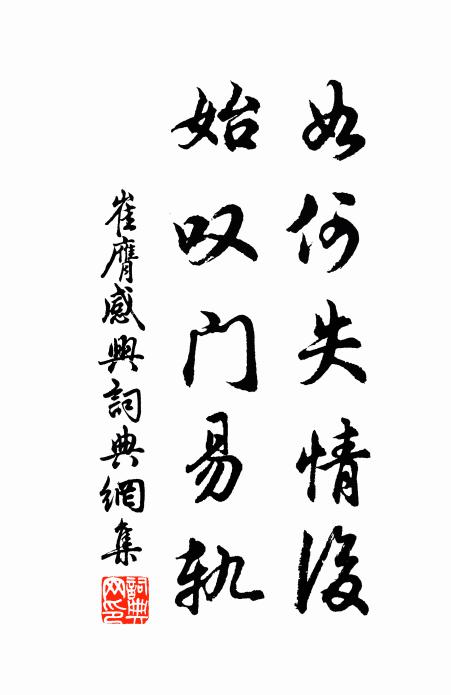 如何失情後
始叹门易轨
崔膺感興詞典網集
詞典网印